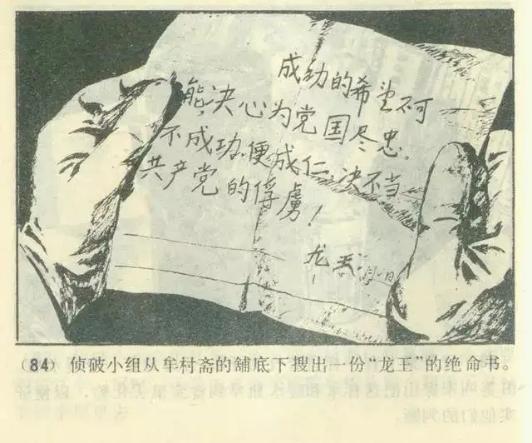 成功的希望不可
能,决心为党国尽忠.
不成功,便成仁,决不当
共产党的俘虏!
龙王
(84) 侦破小组从牟村斋的舖底下搜出一份“龙王”的绝命书。